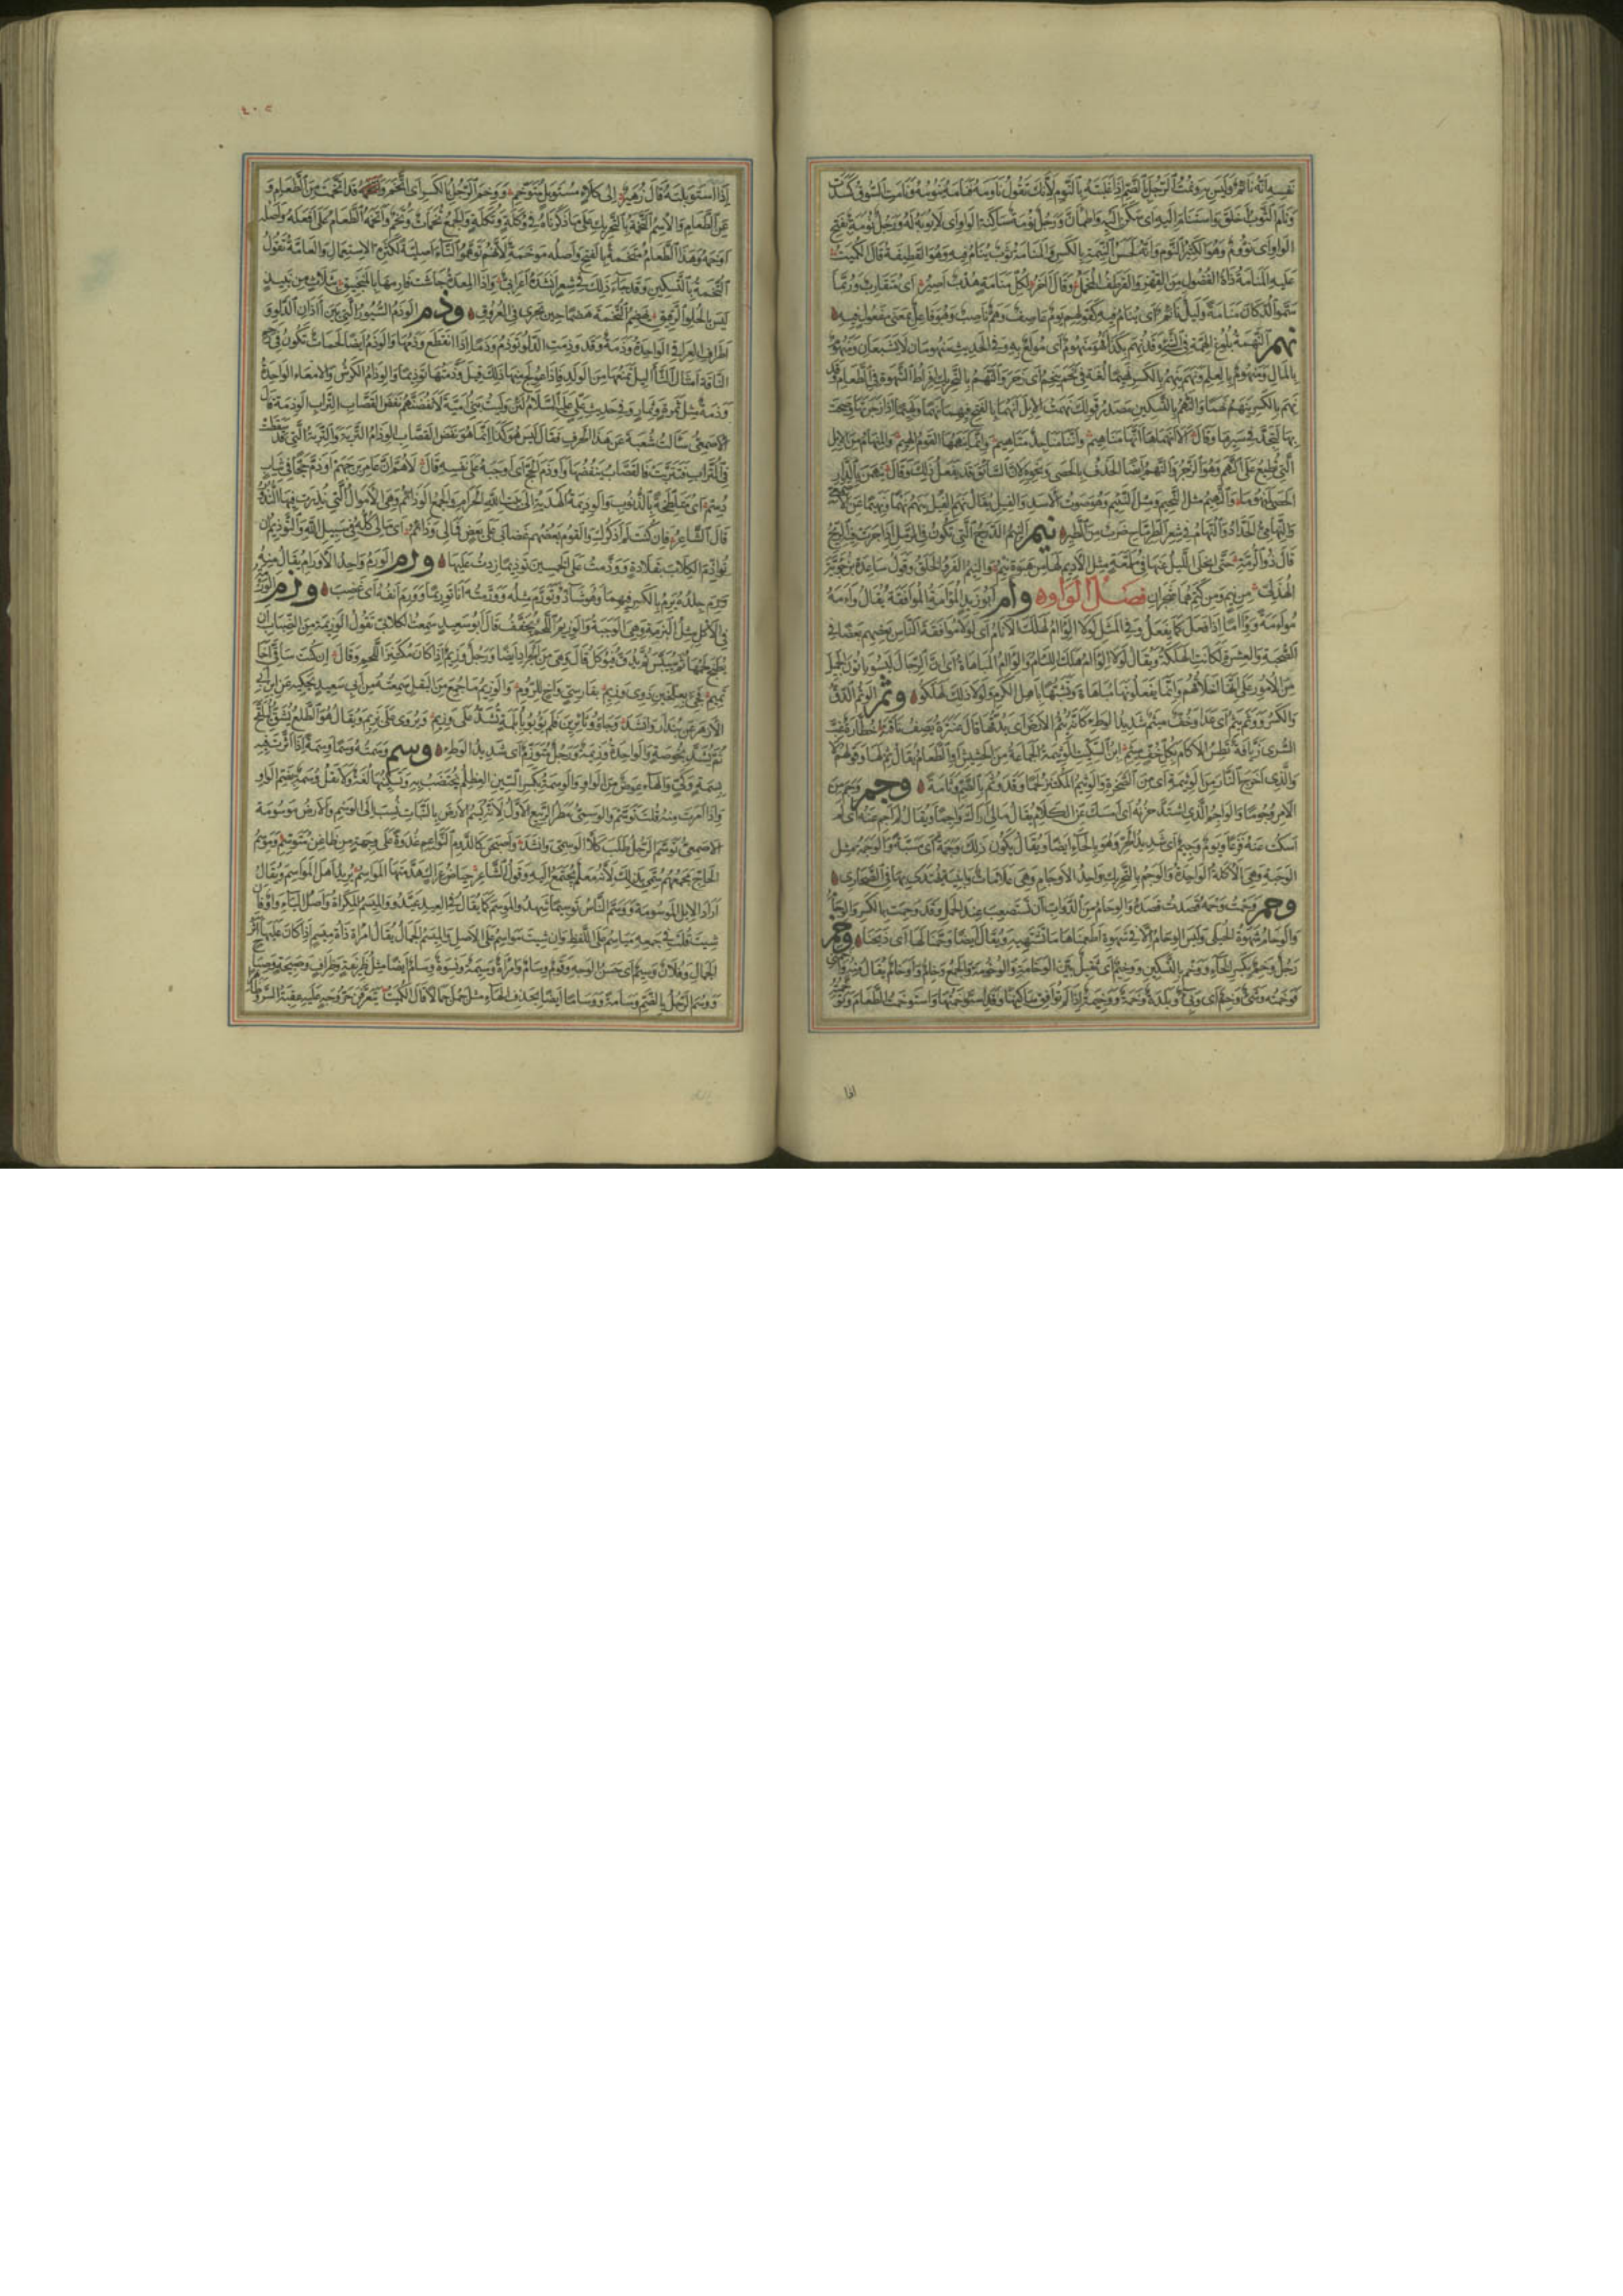 نفسه انه نائم وليس به ونمت الرجل بالضم اذا غلبته بالنوم لانك تقول ناومه فنامه ينومه ونامت السوق كسدت
ونام الثوب اخلق واستنام اليه اى سكن اليه واطمان ورجل نومة ساكنة الواو اى لا يوبه له ورجل نومة بفتح
الواو اى نؤوم وهو الكثير النوم وانه لحسن النيمة بالكسر والمنامة ثوب ينام فيه وهو القطيفة قال الكميت
عليه المنامة ذات الفضول من القهز والقرطف المخمل وقال آخر لكل منامة هدب اصير اى متقارب وربما
سموا الدكان منامة وليل نائم اى ينام فيه كقولهم يوم عاصف وهم ناصب وهو فاعل بمعنى مفعول فيه
نهم النهمة بلوغ الهمة فى الشئ وقد نهم بكذا فهو منهوم اى مولع به وفى الحديث منهومان لا يشبعان منهوم
بالمال ومنهوم بالعلم ونهم ينهم بالكسر نهيما لغة فى نحم ينحم اى زحر والنهم بالتحريك افراط الشهوة فى الطعام وقد
نهم بالكسر ينهم نهما والنهم بالتسكين مصدر قولك نهمت الابل انهمها بالفتح فيهما نهما ونهيما اذا زجرتها وصحت
بها لتجد فى سيرها وقال الا انهماها انها مناهيم واننا مناجد متاهيم وانما ينهمها القوم الهيم والمنهام من الابل
التى تطيع على النهم وهو الزجر والنهم ايضا الحذف بالحصى ونحوه لان السائق قد يفعل ذلك وقال ينهمن بالدار
الحصى المنهوما والنهيم مثل النحيم ومثل النئيم وهو صوت الاسد والفيل يقال نهم الفيل ينهم نهما ونهيما عن الاصمعى
والنهامى الحداد والنهام فى شعر الطرماح ضرب من الطير نيم النيم الدرج التى تكون فى الرمل اذا جرت فيه الريح
قال ذو الرمة حتى انجلى الليل عنها فى ملمعة مثل الاديم لها من هبوة نيم والنيم الفرو الخلق وقول ساعدة بن جؤية
الهذلى من نيم ومن كتم هما شجران فصل الواو وأم ابو زيد المواءمة الموافقة يقال واءمه
مواءمة ووئاما اذا فعل كما يفعل وفى المثل لولا الوئام لهلك الانام اى لولا موافقة الناس بعضهم بعضا فى
الصحبة والعشرة لكانت الهلكة ويقال لولا الوئام هلك اللئام والوئام المباهاة اى ان الرجال ليسوا ياتون الجميل
من الامور على انها اخلاقهم وانما يفعلونها مباهاة وتشبها باهل الكرم ولولا ذلك لهلكوا وثم الوثم الدق
والكسر ووثم يثم اى عدا وخف ميثم شديد الوطء كانه يثم الارض اى يدقها قال عنترة يصف ناقة خطارة غب
السرى زيافة تطس الاكام بكل خف ميثم ابن السكيت الوثيمة الجماعة من الحشيش والطعام يقال ثم لها وقولهم لا
والذى اخرج النار من الوثيمة اى من الصخرة والوثيم المكتنز لحما وقد وثم بالضم وثامة وجم وجم من
الامر وجوما والواجم الذى اشتد حزنه اى امسك عن الكلام يقال مالى اراك واجما ويقال لم اجم عنه اى لم
اسكت عنه فزعا ويوم وجيم اى شديد الحر وهو بالحاء ايضا ويقال يكون ذلك وجمة اى مسبة والوجمة مثل
الوجبة وهى الاكلة الواحدة والوجم بالتحريك واحد الاوجام وهى علامات وابنية يهتدى بها فى الصحارى
وحم وحمت وحمه قصدت قصده والوحام من الدواب ان تستصعب عند الحمل وقد وحمت بالكسر والوحام
والوحام شهوة الحبلى وليس الوحام الا فى شهوة اطعمناها ما تشتهيه ويقال ايضا وحمنا لها اى ذبحنا وخم
رجل وخم بكسر الخاء ووخم بالتسكين ووخيم اى ثقيل بين الوخامة والوخومة والجمع وخام واوخام يقال منه واخمنى
فوخمته وشئ وخم اى وبئ وبلدة وخمة ووخيمة اذا لم توافق ساكنها وقد استوخمتها واستوخمت الطعام وتوخمته
اذا
٤٠٥
اذا استوبلته قال زهير الى كلاء مستوبل متوخم ووخم الرجل بالكسر اى اتخم وقد اتخمت من الطعام و
عن الطعام والاسم التخمة بالتحريك على ما ذكرناه فى وكلة وتكلة والجمع تخمات وتخم واتخمه الطعام على افعله واصله
اوخمه وهذا الطعام متخمة بالفتح واصله موخمة لانهم توهموا التاء اصلية لكثرة الاستعمال والعامة تقول
التخمة بالتسكين وقد جاء ذلك فى شعر انشده اعرابى واذا المعدة جاشت فارمها بالمنجنيق بثلاث من نبيذ
ليس بالحلو الرقيق تهضم التخمة هضما حين تجرى فى العروق وذم الوذم السيور التى بين آذان الدلو و
اطراف العراقى الواحدة وذمة وقد وذمت الدلو توذم وذما اذا انقطع وذمها والوذم ايضا لحمات تكون فى رحم
الناقة امثال الثآليل تمنعها من الولد فاذا عولج منها ذلك قيل وذمتها توذيما والوذام الكرش والامعاء الواحدة
وذمة مثل ثمرة وثمار وفى حديث على عليه السلام لئن وليت بنى امية لانفضنهم نفض القصاب التراب الوذمة قال
الاصمعى سالت شعبة عن هذا الحرف فقال ليس هو كذا انما هو نفض القصاب الوذام التربة والتربة التى قد سقطت
فى التراب فتتربت فالقصاب ينفضها واوذم الحج اى اوجبه على نفسه قال لا هم ان عامر بن جهم اوذم حجا فى ثياب
دسم اى متلطخة بالذنوب والوذيمة الهدية الى بيت الله الحرام والجمع الوذائم وهى الاموال التى نذرت فيها النذور
قال الشاعر فان كنت لم اذكرك والقوم بعضهم غضابى على بعض فمالى وذائم اى مالى كله فى سبيل الله والتوذيم ان
توذم الكلاب بقلادة ووذمت على الخمسين توذيما زدت عليها ورم الورم واحد الاورام يقال منه
ورم جلده يرم بالكسر فيهما وهو شاذ وتورم مثله وورمته انا توريما وورم انفه اى غضب وزم الوزمة
فى الاكل مثل البزمة وهى الوجبة والوزيم اللحم يجفف قال ابو سعيد سمعت الكلابى تقول الوزيمة من الضباب ان
يطبخ لحمها ثم ييبس ثم يدق فيوكل قال وهى من الجراد ايضا ورجل وزيم اذا كان مكتنز اللحم وقال ان كنت ساقى اخا
تميم فجئ بعلجين ذوى وزيم بفارسى واخ للروم والوزيم ما جمع من البقل سمعته من ابى سعيد يحكيه عن ابى
الازهر عن بندار وانشد وجاؤوا ثائرين فلم يؤوبوا بابلمة تشد على وزيم ويروى على بزيم ويقال هو الطلع يشق ليلقح
ثم يشد بخوصة والواحدة وزيمة ورجل متوزم اى شديد الوطء وسم وسمته وسما وسمة اذا اثرت فيه
بسمة وكى والهاء عوض من الواو والوسمة بكسر السين العظلم يختضب به وتسكينها لغة ولا تقل وسمة بضم الواو
واذا امرت منه قلت توسم والوسمى مطر الربيع الاول لانه يسم الارض بالنبات نسب الى الوسم والارض موسومة
الاصمعى توسم الرجل طلب كلا الوسمى وانشد واصبحن كالدوم النواعم غدوة على وجهة من ظاعن متوسم وموسم
الحاج مجمعهم سمى بذلك لانه معلم يجتمع اليه وقول الشاعر حياض عراك هدمتها المواسم يريد اهل المواسم ويقال
اراد الابل الموسومة ووسم الناس توسيما شهدوا الموسم كما يقال فى العيد عيدوا والميسم المكواة واصل الياء واو فان
شئت قلت فى جمعه مياسم على اللفظ وان شئت مواسم على الاصل والميسم الجمال يقال امراة ذات ميسم اذا كان عليها اثر
الجمال وفلان وسيم اى حسن الوجه وقوم وسام وامراة وسيمة ونسوة وسام ايضا مثل ظريفة وظراف وصبيحة وصباح
ووسم الرجل بالضم وسامة ووساما ايضا بحذف الهاء مثل جمل جمالا قال الكميت يتعرفن حر وجه عليه عقبة السرو ظاهرا